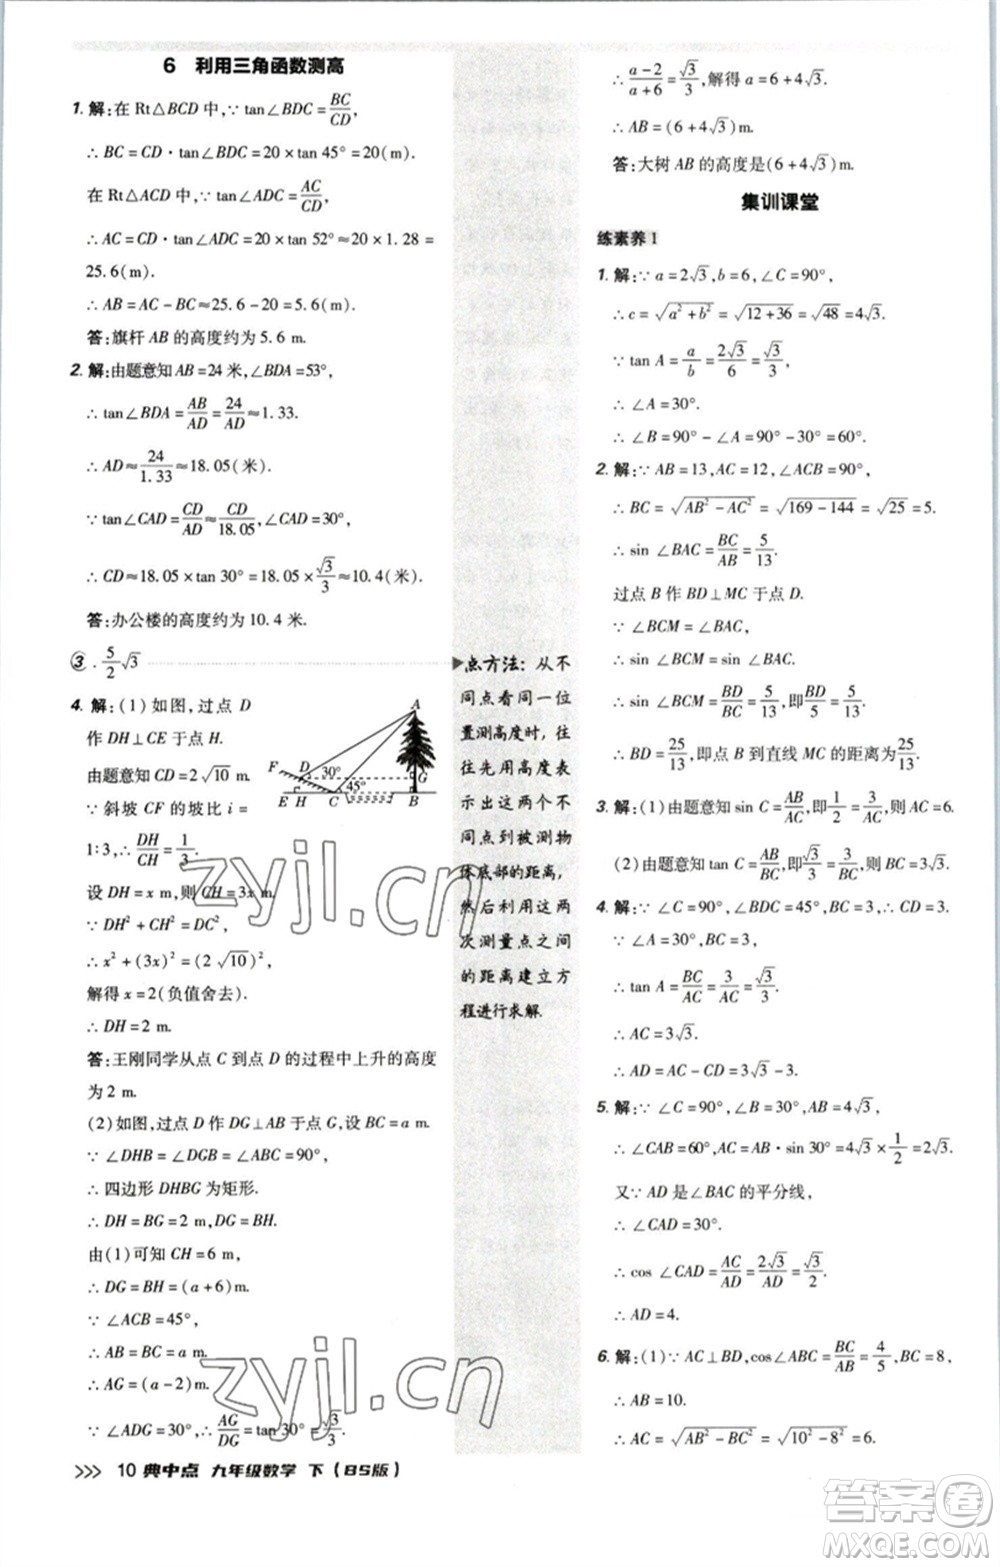 6 利用三角函数测高
1. 解:在 Rt△BCD 中,∵ tan∠BDC = BC/CD,
∴ BC = CD · tan∠BDC = 20 × tan 45° = 20(m).
在 Rt△ACD 中,∵ tan∠ADC = AC/CD,
∴ AC = CD · tan∠ADC = 20 × tan 52° ≈ 20 × 1.28 =
25.6(m).
∴ AB = AC − BC ≈ 25.6 − 20 = 5.6(m).
答:旗杆 AB 的高度约为 5.6 m.
2. 解:由题意知 AB = 24 米,∠BDA = 53°,
∴ tan∠BDA = AB/AD = 24/AD ≈ 1.33.
∴ AD ≈ 24/1.33 ≈ 18.05(米).
∵ tan∠CAD = CD/AD ≈ CD/18.05,∠CAD = 30°,
∴ CD ≈ 18.05 × tan 30° = 18.05 × √3/3 ≈ 10.4(米).
答:办公楼的高度约为 10.4 米.
3. 5/2 √3
4. 解:(1)如图,过点 D
作 DH⊥CE 于点 H.
由题意知 CD = 2√10 m.
∵ 斜坡 CF 的坡比 i =
1∶3,∴ DH/CH = 1/3.
设 DH = x m,则 CH = 3x m.
∵ DH² + CH² = CD²,
∴ x² + (3x)² = (2√10)²,
解得 x = 2(负值舍去).
∴ DH = 2 m.
答:王刚同学从点 C 到点 D 的过程中上升的高度
为 2 m.
(2)如图,过点 D 作 DG⊥AB 于点 G,设 BC = a m.
∵ ∠DHB = ∠DGB = ∠ABC = 90°,
∴ 四边形 DHBG 为矩形.
∴ DH = BG = 2 m,DG = BH.
由(1)可知 CH = 6 m,
∴ DG = BH = (a + 6)m.
∵ ∠ACB = 45°,
∴ AB = BC = a m.
∴ AG = (a − 2)m.
∵ ∠ADG = 30°,∴ AG/DG = tan 30° = √3/3.
A
F
D
30°
G
45°
E H C B
点方法:从不
同点看同一位
置测高度时,往
往先用高度表
示出这两个不
同点到被测物
体底部的距离,
然后利用这两
次测量点之间
的距离建立方
程进行求解.
∴ (a−2)/(a+6) = √3/3,解得 a = 6 + 4√3.
∴ AB = (6 + 4√3)m.
答:大树 AB 的高度是(6 + 4√3)m.
集训课堂
练素养 1
1. 解:∵ a = 2√3,b = 6,∠C = 90°,
∴ c = √(a² + b²) = √(12 + 36) = √48 = 4√3.
∵ tan A = a/b = 2√3/6 = √3/3,
∴ ∠A = 30°.
∴ ∠B = 90° − ∠A = 90° − 30° = 60°.
2. 解:∵ AB = 13,AC = 12,∠ACB = 90°,
∴ BC = √(AB² − AC²) = √(169 − 144) = √25 = 5.
∴ sin ∠BAC = BC/AB = 5/13.
过点 B 作 BD⊥MC 于点 D.
∵ ∠BCM = ∠BAC,
∴ sin ∠BCM = sin ∠BAC.
∴ sin ∠BCM = BD/BC = 5/13,即 BD/5 = 5/13.
∴ BD = 25/13,即点 B 到直线 MC 的距离为 25/13.
3. 解:(1)由题意知 sin C = AB/AC,即 1/2 = 3/AC,则 AC = 6.
(2)由题意知 tan C = AB/BC,即 √3/3 = 3/BC,则 BC = 3√3.
4. 解:∵ ∠C = 90°,∠BDC = 45°,BC = 3,∴ CD = 3.
∴ tan A = BC/AC = 3/AC = √3/3.
∴ AC = 3√3.
∴ AD = AC − CD = 3√3 − 3.
5. 解:∵ ∠C = 90°,∠B = 30°,AB = 4√3,
∴ ∠CAB = 60°,AC = AB · sin 30° = 4√3 × 1/2 = 2√3.
又∵ AD 是∠BAC 的平分线,
∴ ∠CAD = 30°.
∴ cos ∠CAD = AC/AD = 2√3/AD = √3/2.
∴ AD = 4.
6. 解:(1)∵ AC⊥BD,cos∠ABC = BC/AB = 4/5,BC = 8,
∴ AB = 10.
∴ AC = √(AB² − BC²) = √(10² − 8²) = 6.
>>> 10 典中点 九年级数学 下(BS版)
zyjl.cn
zyjl.cn
答案圈
MXQE.COM